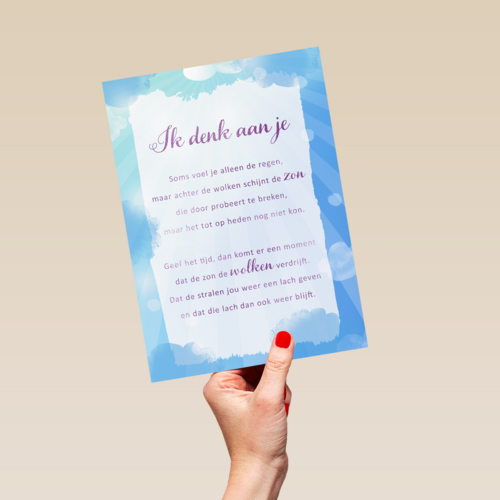 Ik denk aan je
Soms voel je alleen de regen,
maar achter de wolken schijnt de zon
die door probeert te breken,
maar het tot op heden nog niet kon.
Geef het tijd, dan komt er een moment
dat de zon de wolken verdrijft.
Dat de stralen jou weer een lach geven
en dat die lach dan ook weer blijft.